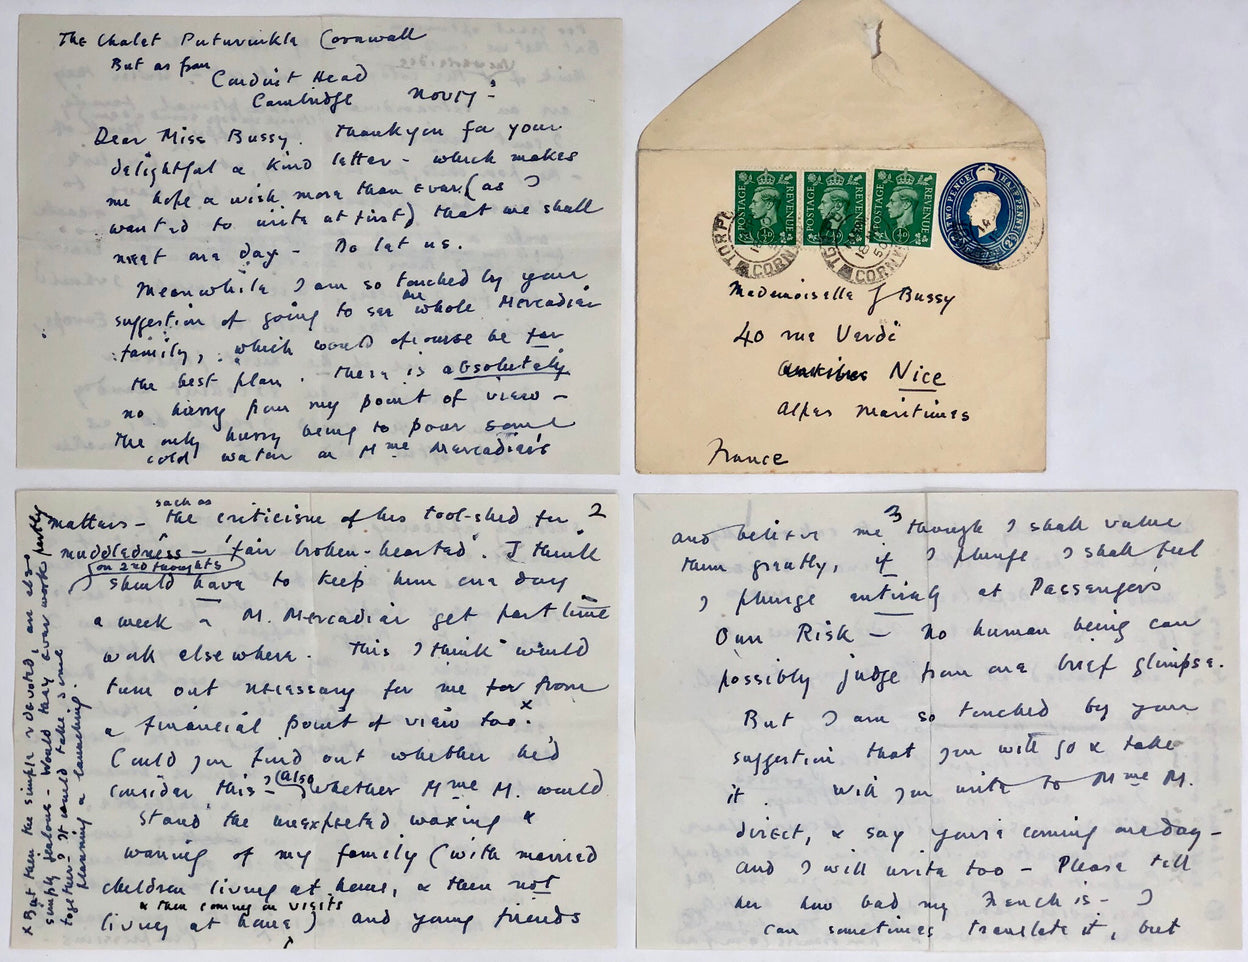 The Chalet Portwrinkle Cornwall
But as from
Conduit Head
Cambridge Nov 17
Dear Miss Bussy. Thankyou for your
delightful & kind letter – which makes
me hope & wish more than ever (as I
wanted to write at first) that we shall
meet one day – Do let us.
Meanwhile I am so touched by your
suggestion of going to see the whole Mercadier
family, which would ofcourse be far
the best plan. There is absolutely
no hurry from my point of view –
the only hurry being to pour some
cold water on Mme Mercadier's
POSTAGE REVENUE
POSTAGE REVENUE
POSTAGE REVENUE
TWO PENCE HALFPENNY
TORPO
CORN
Mademoiselle J Bussy
40 rue Verdi
Antibes Nice
Alpes Maritimes
France
2
matters – such as the criticism of his tool-shed for
muddledness – 'fair broken-hearted'. I think
(on 2nd thoughts)
I should have to keep him one day
a week & M. Mercadier get part time
work elsewhere. This I think would
turn out necessary for me too from
a financial point of view too. x
Could you find out whether he'd
consider this – (Also) whether Mme M. would
stand the unexpected waxing &
waning of my family (with married
children living at home, & then not
living at home & then coming on visits) and young friends
x But then the simple & devoted, are also
simply jealous – Would they ever work partly
together – It would take some
planning & launching.
3
and believe me though I shall value
them greatly, if I plunge I shall feel
I plunge entirely at Passenger's
Own Risk – No human being can
possibly judge from one brief glimpse.
But I am so touched by your
suggestion that you will go & take
it. Will you write to Mme M.
direct, & say you're coming one day –
and I will write too – Please tell
her how bad my French is – I
can sometimes translate it, but